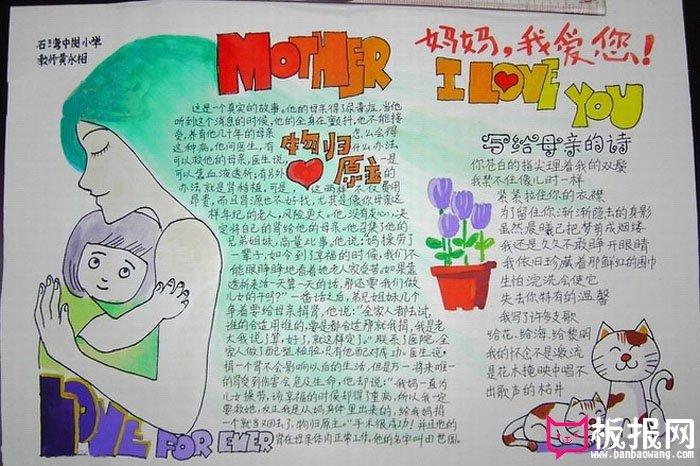 石湾中围小学
教师黄永相
MOTHER
妈妈,我爱您!
I LOVE YOU
物归
原主
这是一个真实的故事。他的母亲得了尿毒症,当他
听到这个消息的时候,他的全身在颤抖,他不能接
受,养育他几十年的母亲
怎么会得
这种病,他问医生,有
什么办法
可以救他的母亲,医生说,
一是
可以靠血液透析;有另外
办法就是肾移植,可是,
这两样不仅费用
昂贵,而且肾源也不好找,尤其是像你母亲这
样年纪的老人,风险更大。他没有灰心,决
定将自己的肾给他的母亲。他召集了他的
兄弟姐妹,商量此事。他说:妈操劳了
一辈子,如今到了享福的时候,我们不
能眼睁睁地看着她老人家受苦。如果靠
透析来活一天算一天的话,那还要我们做儿
女的干吗?”一番话之后,弟兄姐妹几个
争着要给母亲捐肾,他说:“全家人都去试,
谁的合适用谁的,要是都合适那就我捐,我是老
大我说了算,好了,就这样定了。”联系了医院,全
家人做了配型检验,只有他配对成功。医生说:
捐一个肾不会影响以后的生活,但是万一将来唯一
的肾受到伤害会危及生命,他却说:“我妈一直为
儿女操劳,该享福的时候却得了重病,所以我一定
要救她,反正我是从妈身体里出来的,给我妈捐
一个就当又回去了,物归原主。”手术很成功!并且他的
肾在母亲体内正常工作,他的名字叫田世国。
写给母亲的诗
你苍白的指尖理着我的双鬓
我禁不住像儿时一样
紧紧拉住你的衣襟
为了留住你渐渐隐去的身影
虽然晨曦已把梦剪成烟缕
我还是久久不敢睁开眼睛
我依旧珍藏着那鲜红的围巾
生怕浣洗会使它
失去你特有的温馨
我写了许多支歌
给花,给海,给黎明
我的怀念不是激流
是花木掩映中唱不
出歌声的枯井
LOVE FOR EVER
板报网
www.banbaowang.com